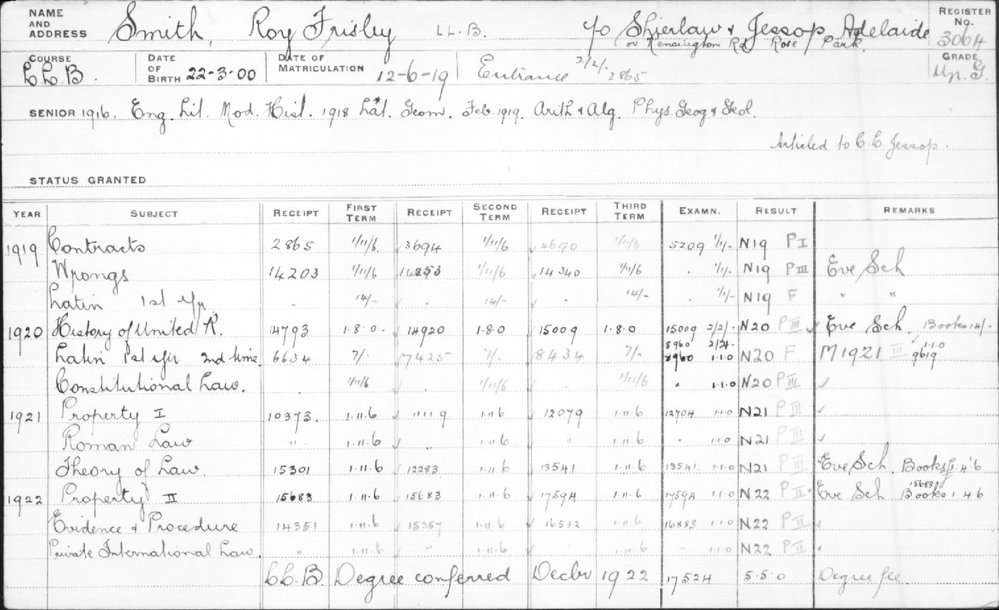 NAME AND ADDRESS Smith, Roy Frisby LL.B. c/o Shierlaw & Jessop Adelaide REGISTER No. 3064
or Kensington Rd Rose Park
COURSE LL.B. DATE OF BIRTH 22-3-00 DATE OF MATRICULATION 12-6-19 Entrance 2/2/- 2865 GRADE Un. G.
SENIOR 1916. Eng. Lit. Mod. Hist. 1918 Lat. Geom. Feb. 1919. Arith & Alg. Phys. Geog & Geol.
Articled to C. C. Jessop.
STATUS GRANTED
YEAR SUBJECT RECEIPT FIRST TERM RECEIPT SECOND TERM RECEIPT THIRD TERM EXAMN. RESULT REMARKS
1919 Contracts 2865 1/11/6 3694 1/11/6 4690 1/11/6 5209 1/1/- N19 P I
Wrongs 14203 1/11/6 14253 1/11/6 14340 1/11/6 " 1/1/- N19 P III Eve Sch
Latin 1st Yr " 14/- " 14/- " 14/- " 1/1/- N19 F " "
1920 History of United K. 14793 1.8.0 14920 1.8.0 15009 1.8.0 15009 2/2/- N20 P III Eve Sch. Books 14/-
Latin 1st Yr 2nd time. 6634 7/- 7425 7/- 8434 7/- 8960 1.1.0 N20 F M1921 III 1.1.0 9619
Constitutional Law. 1/11/6 1/11/6 1/11/6 " 1.1.0 N20 P III
1921 Property I 10373 1.11.6 11119 1.11.6 12079 1.11.6 12704 1.1.0 N21 P III
Roman Law " 1.11.6 " 1.11.6 " 1.11.6 " 1.1.0 N21 P III
Theory of Law 15301 1.11.6 12283 1.11.6 13541 1.11.6 13541 1.1.0 N21 P III Eve Sch. Books 1.4.6
1922 Property II 15683 1.11.6 15683 1.11.6 17594 1.11.6 17594 1.1.0 N22 P II Eve Sch Books 15683 1.4.6
Evidence & Procedure 14351 1.11.6 15357 1.11.6 16532 1.11.6 16885 1.1.0 N22 P II
Private International Law. " 1.11.6 " 1.11.6 " 1.11.6 " 1.1.0 N22 P II
LL.B Degree conferred Decbr 1922 17524 5.5.0 Degree fee